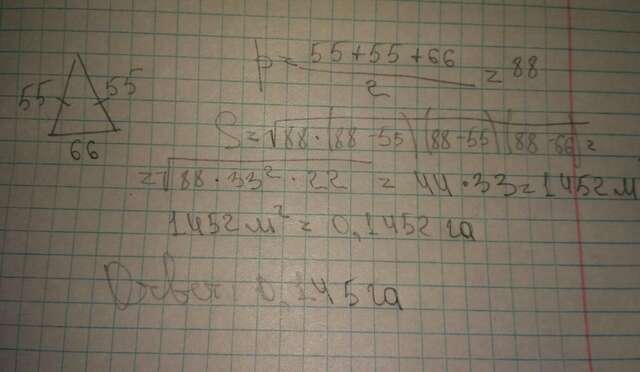 55 55
66
p = (55+55+66)/2 = 88
S = √(88·(88-55)(88-55)(88-66)) =
= √(88·33²·22) = 44·33 = 1452 м
1452 м² = 0,1452 га
Ответ: 0,145 га